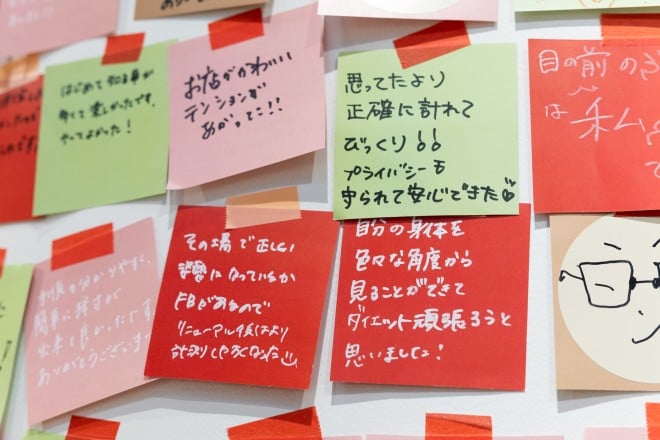 はじめて知る事が
多くて楽しかったです。
やってよかった!
お店がかわいい
テンションが
あがってこ!!
思ってたより
正確に計れて
びっくり!!
プライバシーも
守られて安心できた
目の前の
は 私
その場で正しい
姿勢になっているか
FBがあるので
リニューアル後はより
計測しやすくなった
自分の身体を
色々な角度から
見ることができて
ダイエット頑張ろうと
思いました!
分かりやすく、
簡単に採寸が
出来て良かったです。
ありがとうございます